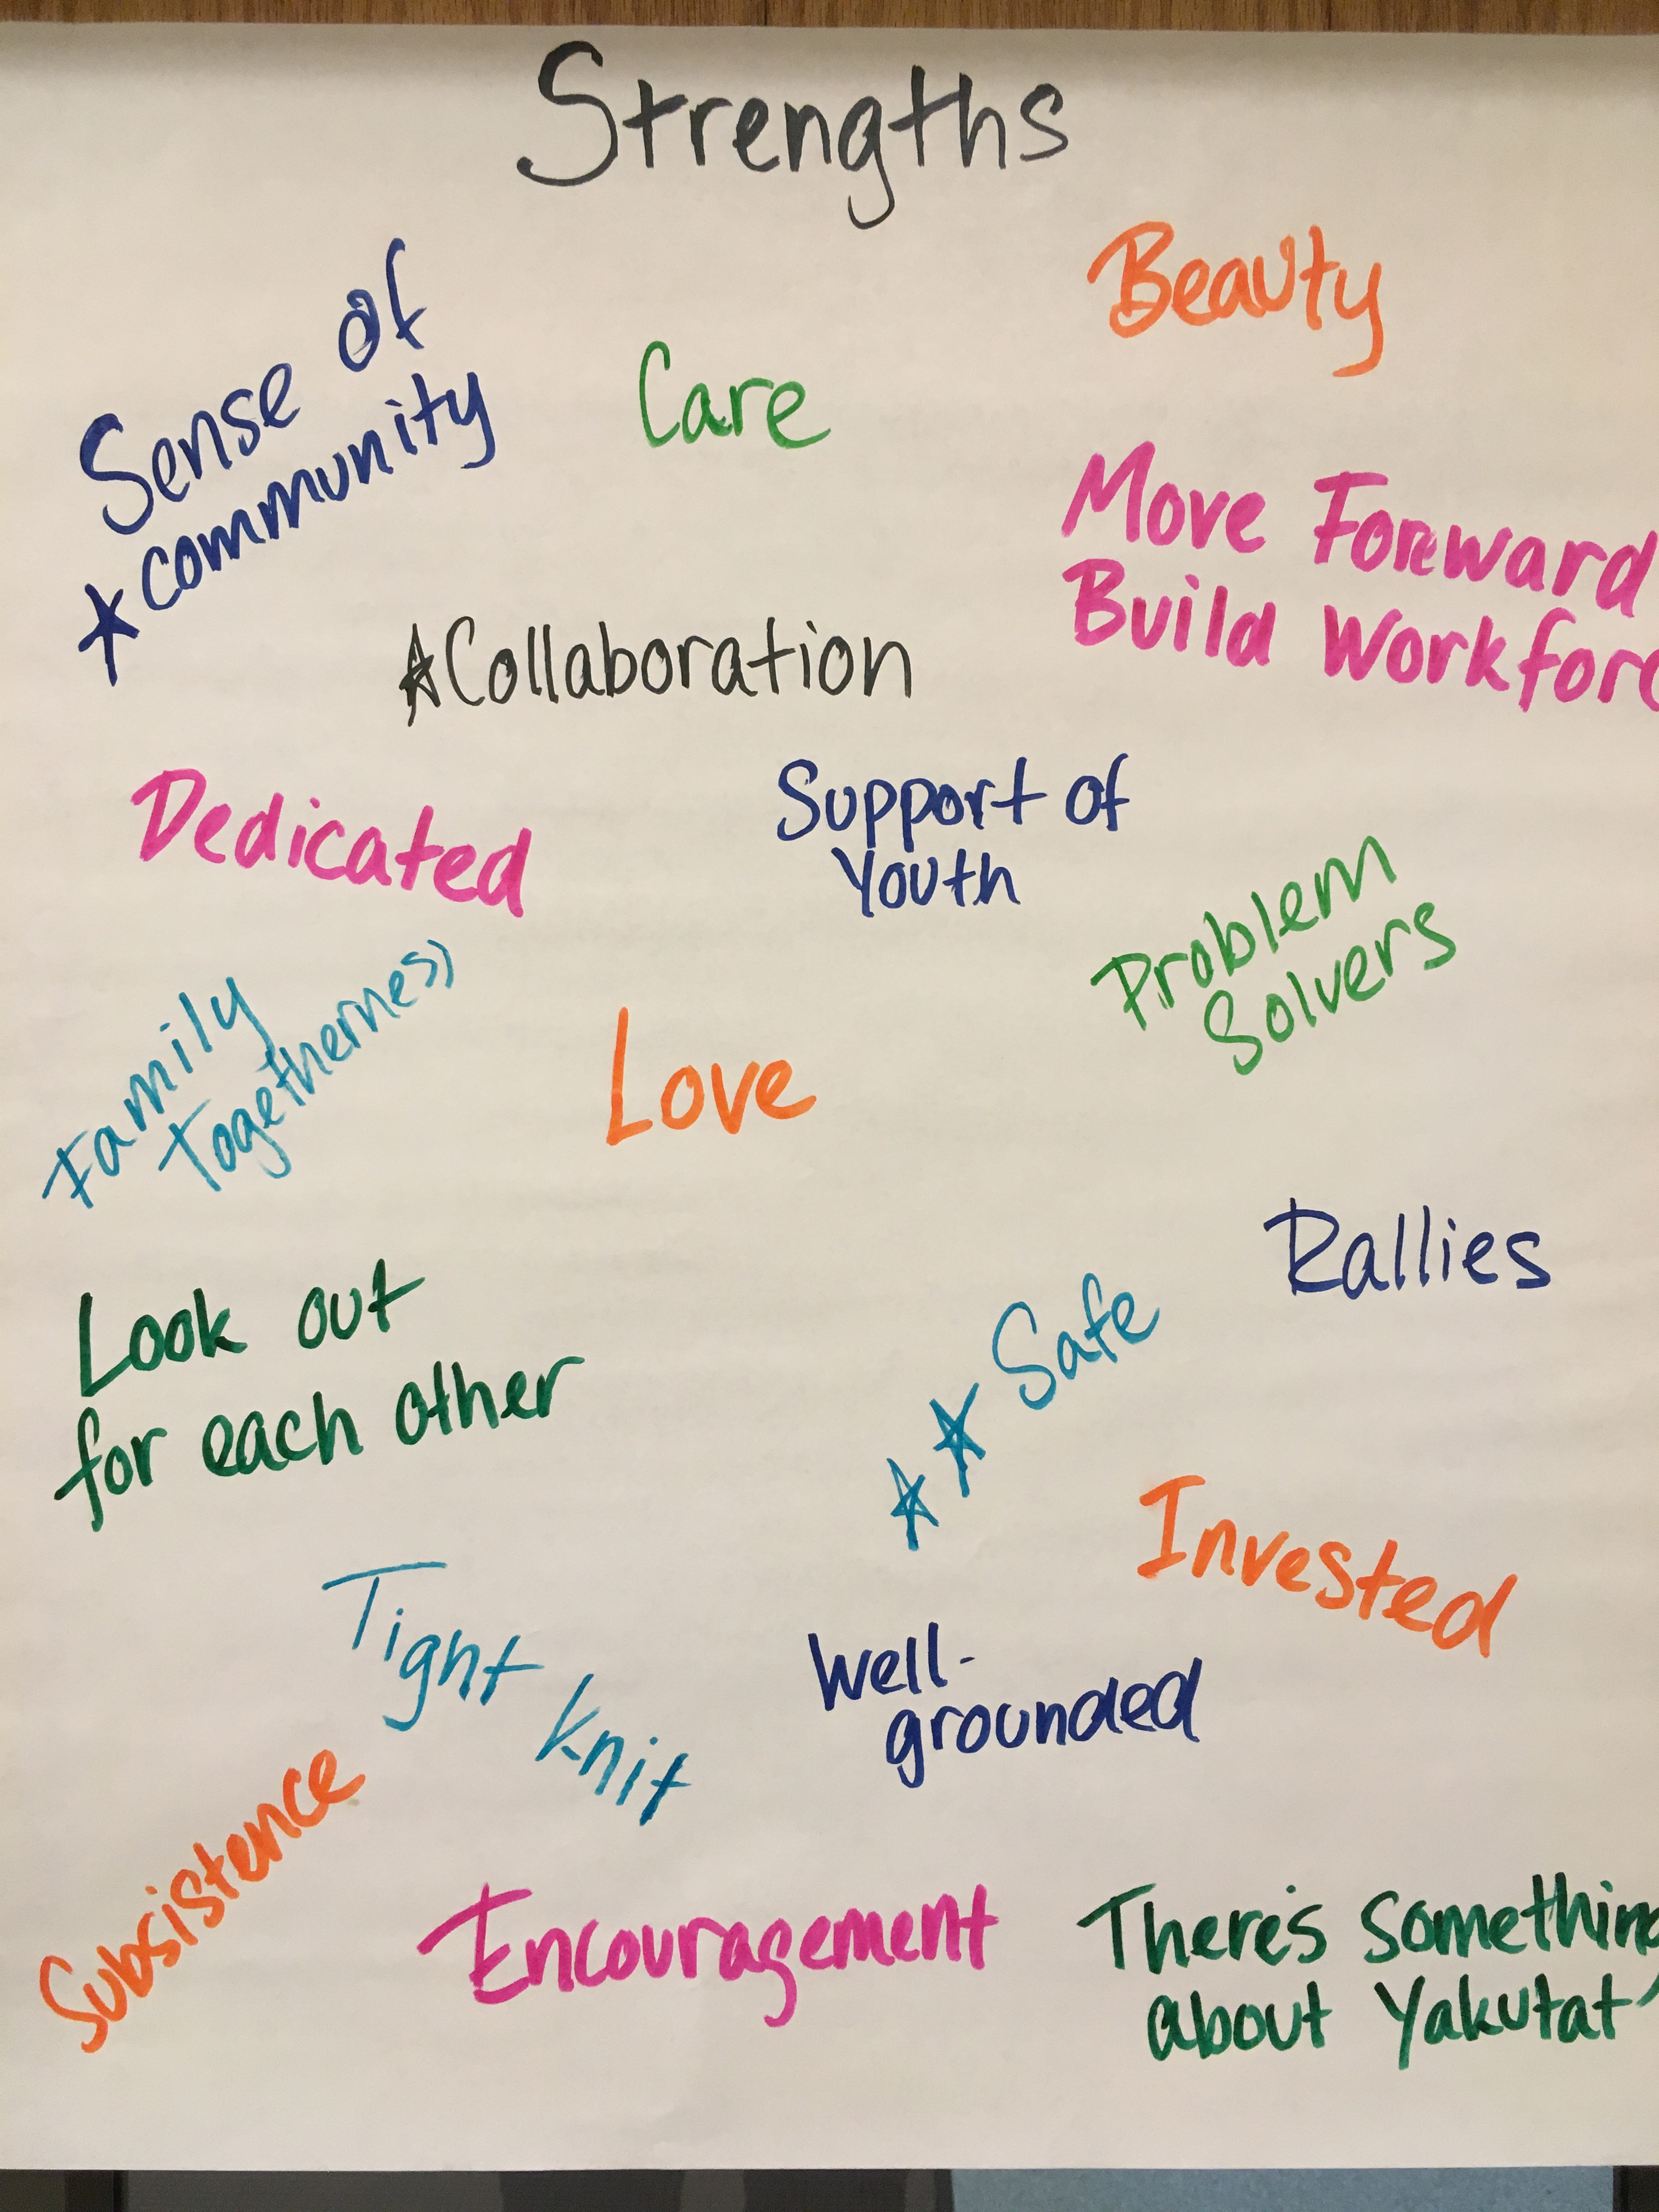 Strengths
Beauty
Sense of
★ community
Care
Move Forward
Build Workforc
★ Collaboration
Dedicated
Support of
Youth
Problem
Solvers
Family
Togetherness
Love
Rallies
Look out
for each other
★ ★ Safe
Invested
Tight knit
Well-
grounded
Subsistence
Encouragement
There's something
about Yakutat